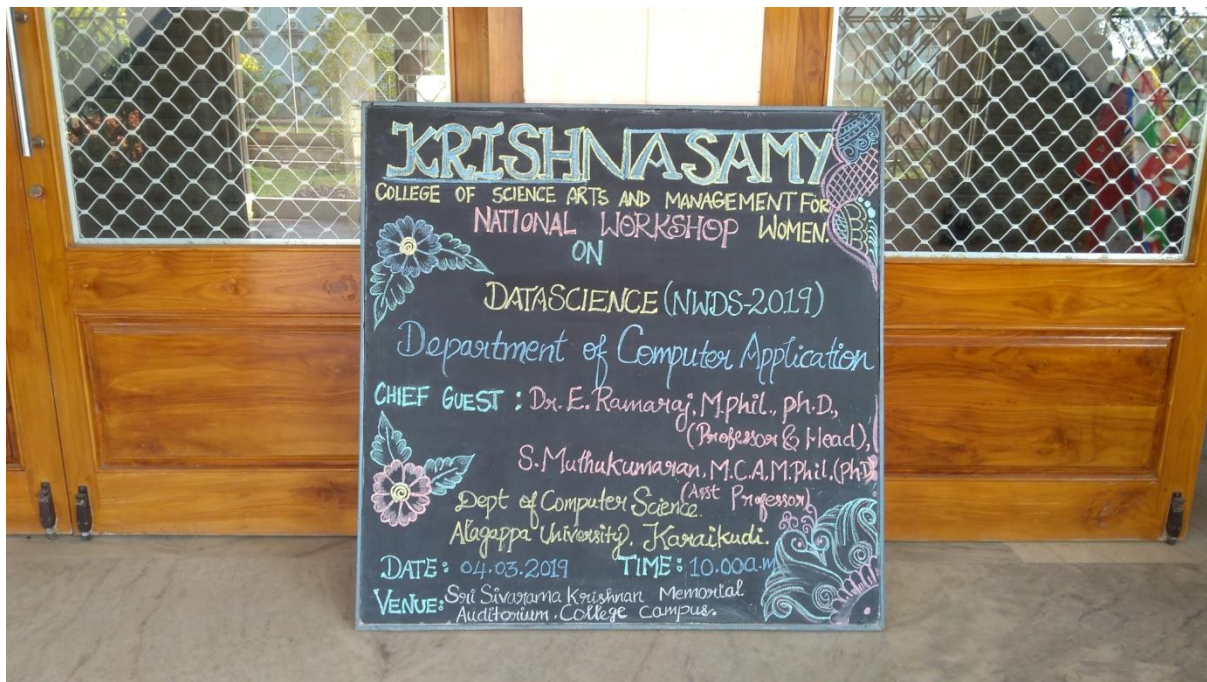 KRISHNASAMY
COLLEGE OF SCIENCE ARTS AND MANAGEMENT FOR
WOMEN.
NATIONAL WORKSHOP
ON
DATASCIENCE (NWDS-2019)
Department of Computer Application
CHIEF GUEST : Dr. E. Ramaraj, M.phil., ph.D.,
(Professor & Head),
S. Muthukumaran, M.C.A, M.Phil, (ph.D)
(Asst Professor)
Dept of Computer Science.
Alagappa University, Karaikudi.
DATE: 04.03.2019 TIME: 10.00a.m
VENUE: Sri Sivarama Krishnan Memorial
Auditorium, College Campus.